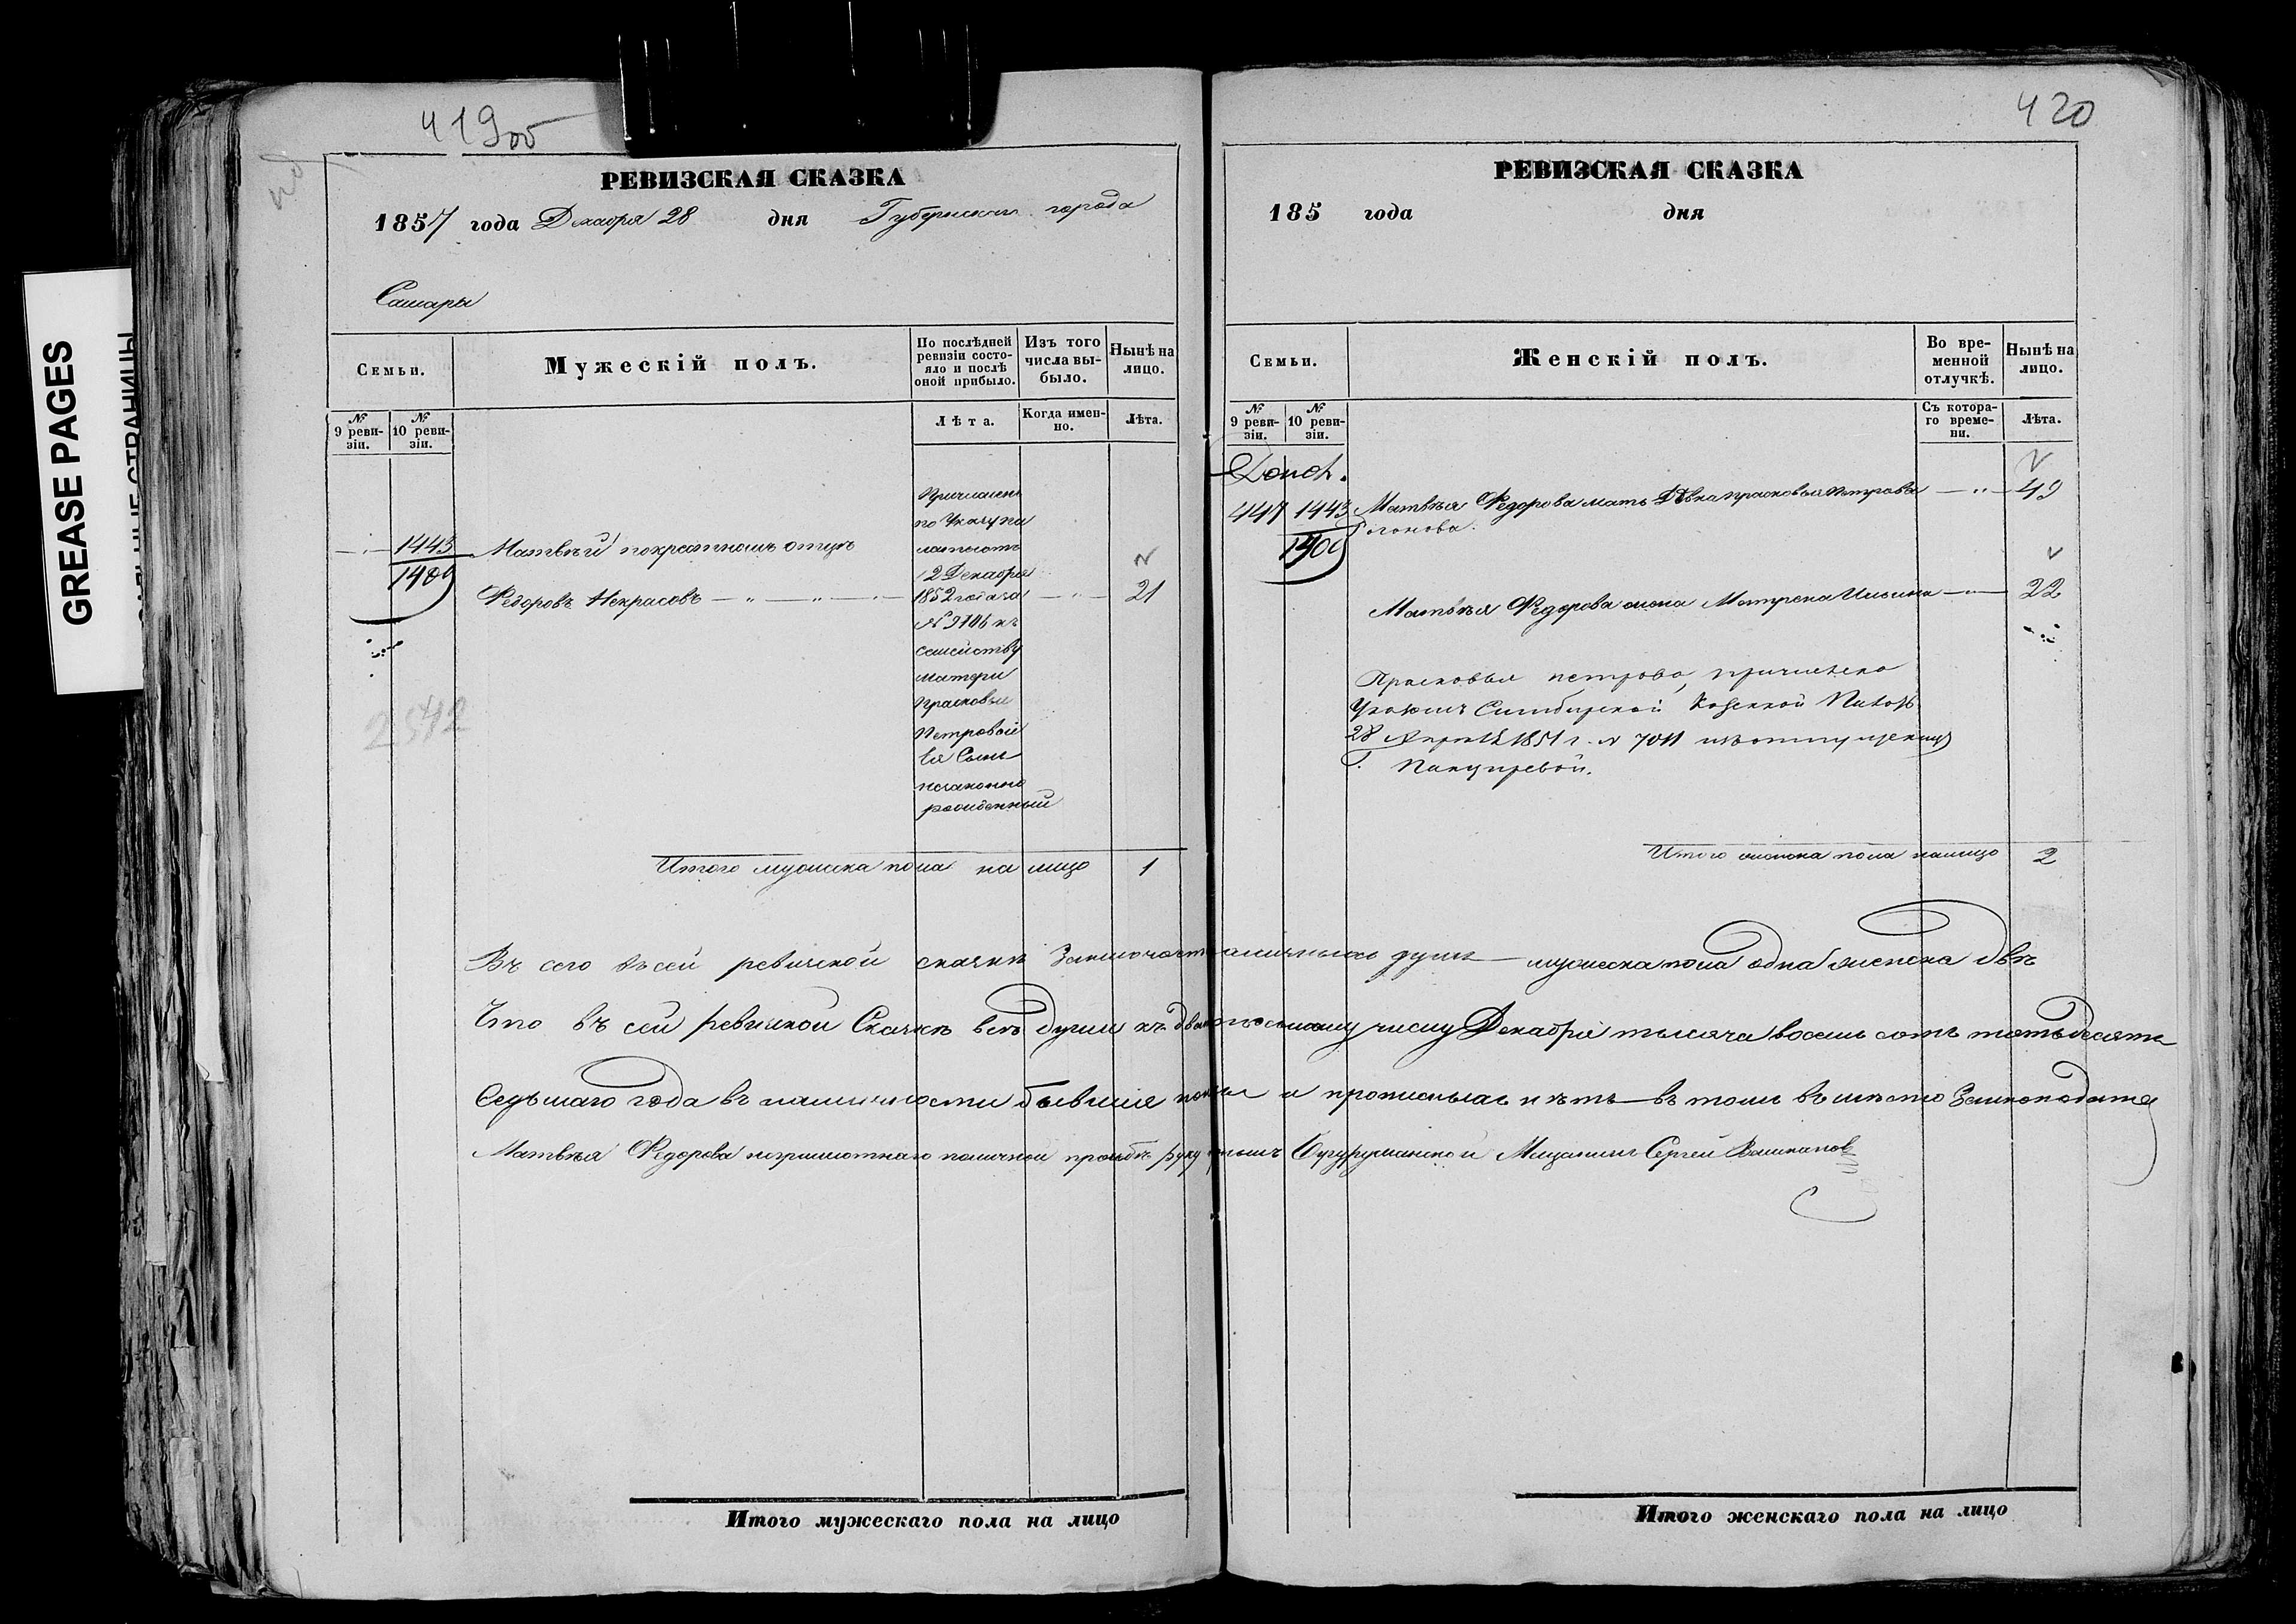 GREASE PAGES
419 об
РЕВИЗСКАЯ СКАЗКА
1857 года Декабря 28 дня Губернскаго города
Самары
Семьи.
Мужескій полъ.
По послѣдней ревизіи состояло и послѣ оной прибыло.
Изъ того числа выбыло.
Нынѣ на лицо.
№ 9 ревизіи.
№ 10 ревизіи.
Лѣта.
Когда именно.
Лѣта.
Причисленъ
по Указу па
латы отъ
12 Декабря
1852 года за
№ 9706 къ
семейству
матери
Прасковьи
Петровой
Ея Сынъ
незаконно
рожденный
1443
1409
Матвѣй по крестному отцу
Федоровъ Некрасовъ 21
2542
Итого мужеска пола на лицо 1
420
РЕВИЗСКАЯ СКАЗКА
185 года дня
Семьи.
Женскій полъ.
Во временной отлучкѣ.
Нынѣ на лицо.
№ 9 ревизіи.
№ 10 ревизіи.
Съ котораго времени.
Лѣта.
447 1443 Матвѣя Федорова мать Дѣвка Прасковья Петрова 49
1409
Матвѣя Федорова жена Матрена Ильина 22
Прасковья Петрова, причислена
Указомъ Симбирской Казенной Палаты
28 Апрѣля 1851 г. №
Итого женска пола налицо 2
Всего въ сей ревизской сказкѣ Заключается наличныхъ душъ мужеска пола одна женска двѣ
Что въ сей ревизской Сказкѣ всѣ души къ двадцать осьмому числу Декабря тысяча восемь сотъ пятьдесятъ
Седьмаго года въ наличности бывшія показаны и прописныхъ нѣтъ въ томъ вмѣсто Сказкоподателя
Матвѣя Федорова неграмотнаго по личной прозьбѣ руку Бугурусланской Мѣщанинъ Сергей
Итого мужескаго пола на лицо
Итого женскаго пола на лицо